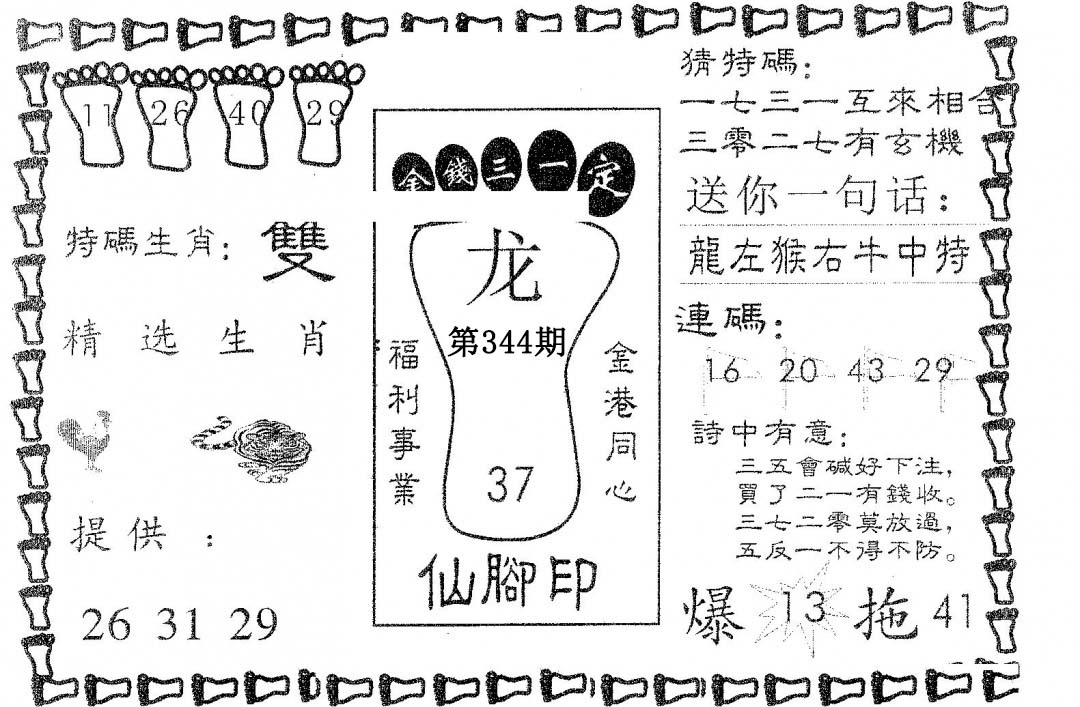 11 26 40 29
特碼生肖：雙
精选生肖
提供：
26 31 29
金錢三一定
龙
第344期
福利事業
金港同心
37
仙腳印
猜特碼：
一七三一互來相合
三零二七有玄機
送你一句话：
龍左猴右牛中特
連碼：
16 20 43 29
詩中有意：
三五會碱好下注，
買了二一有錢收。
三七二零莫放過，
五反一不得不防。
爆 13 拖 41